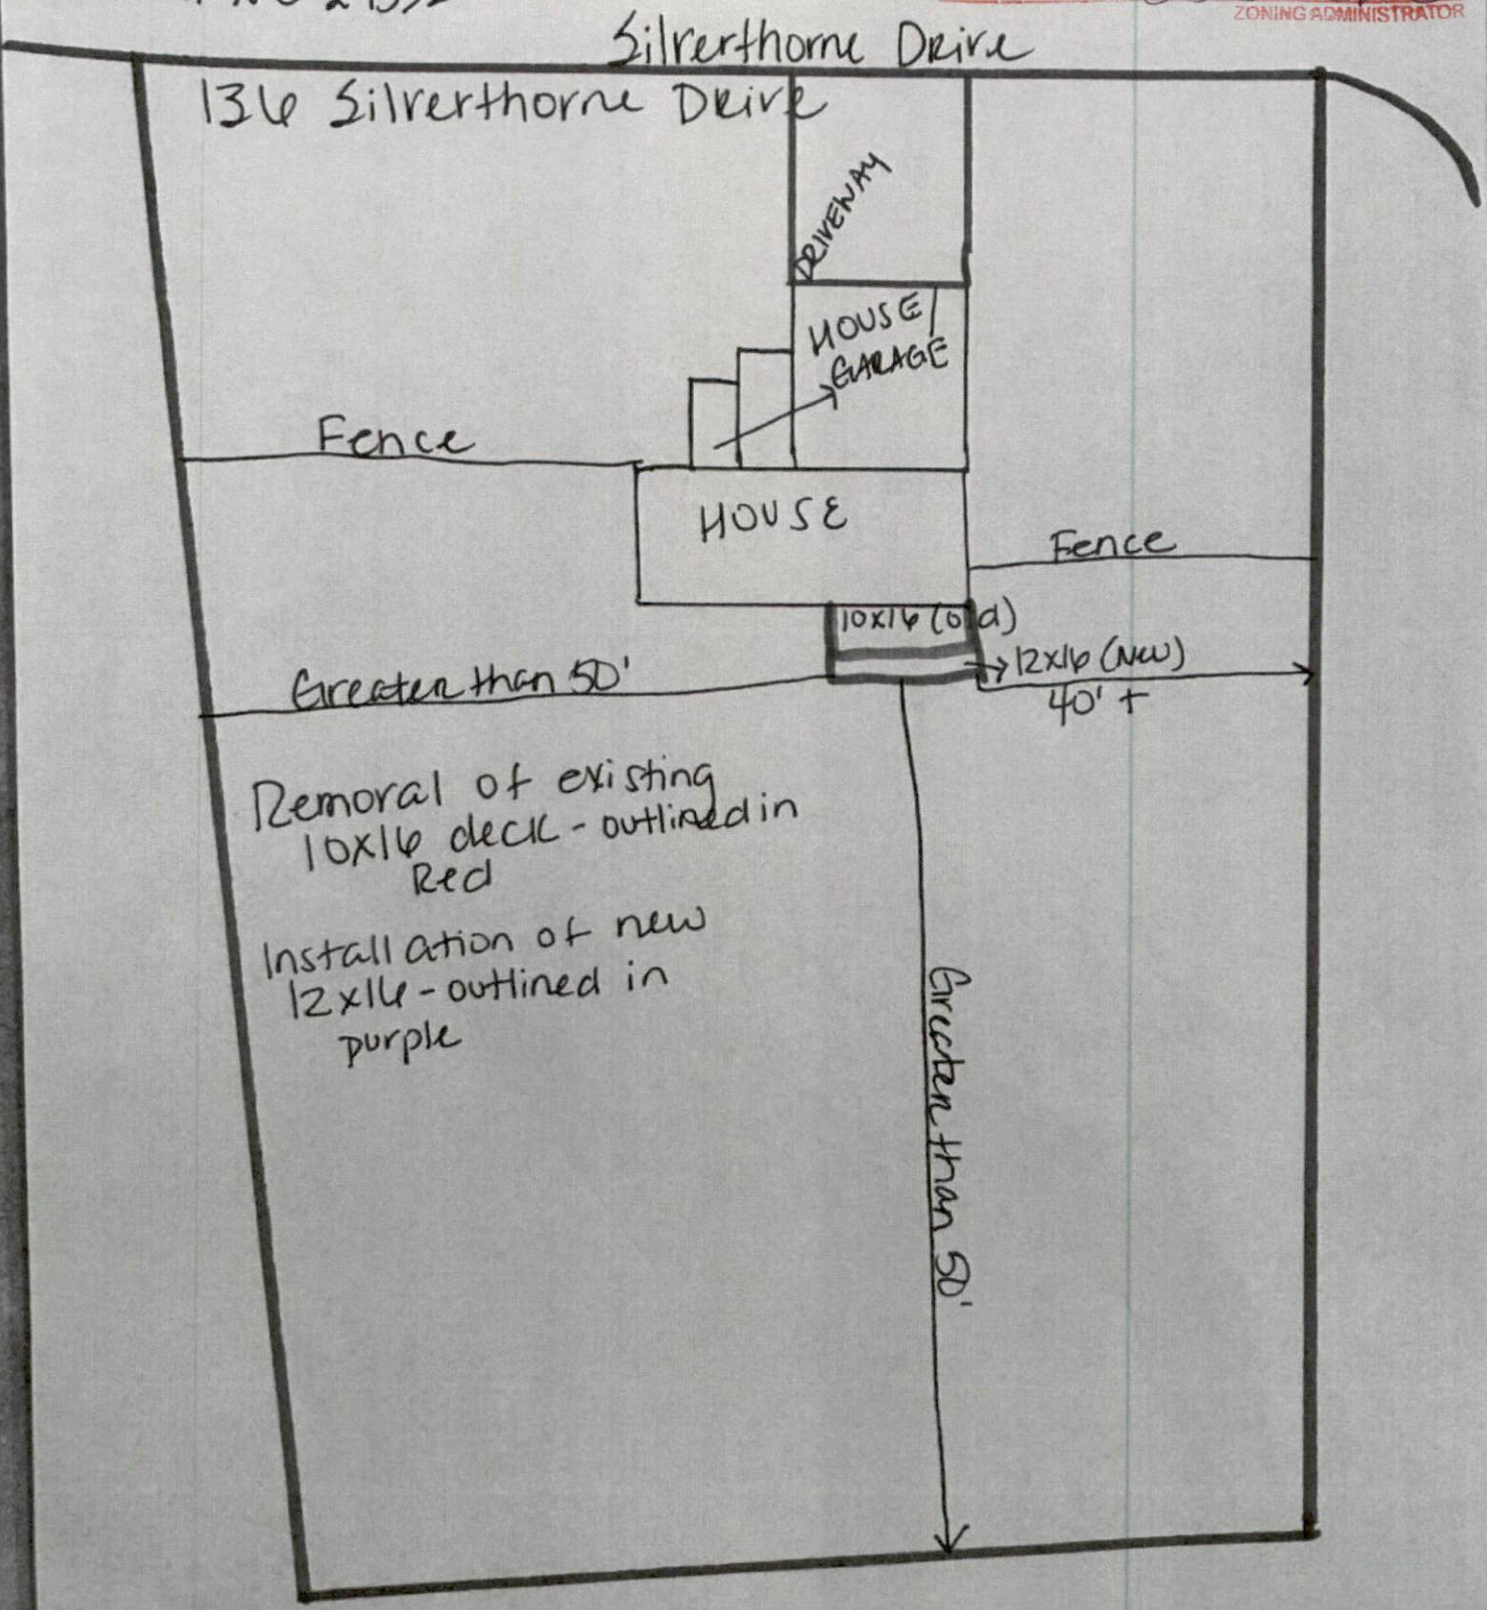 ZONING ADMINISTRATOR
Silverthorne Drive
136 Silverthorne Drive
DRIVEWAY
HOUSE/
GARAGE
Fence
HOUSE
Fence
10x16 (old)
12x16 (New)
Greater than 50'
40' +
Removal of existing
10x16 deck - outlined in
Red
Installation of new
12x16 - outlined in
purple
Greater than 50'